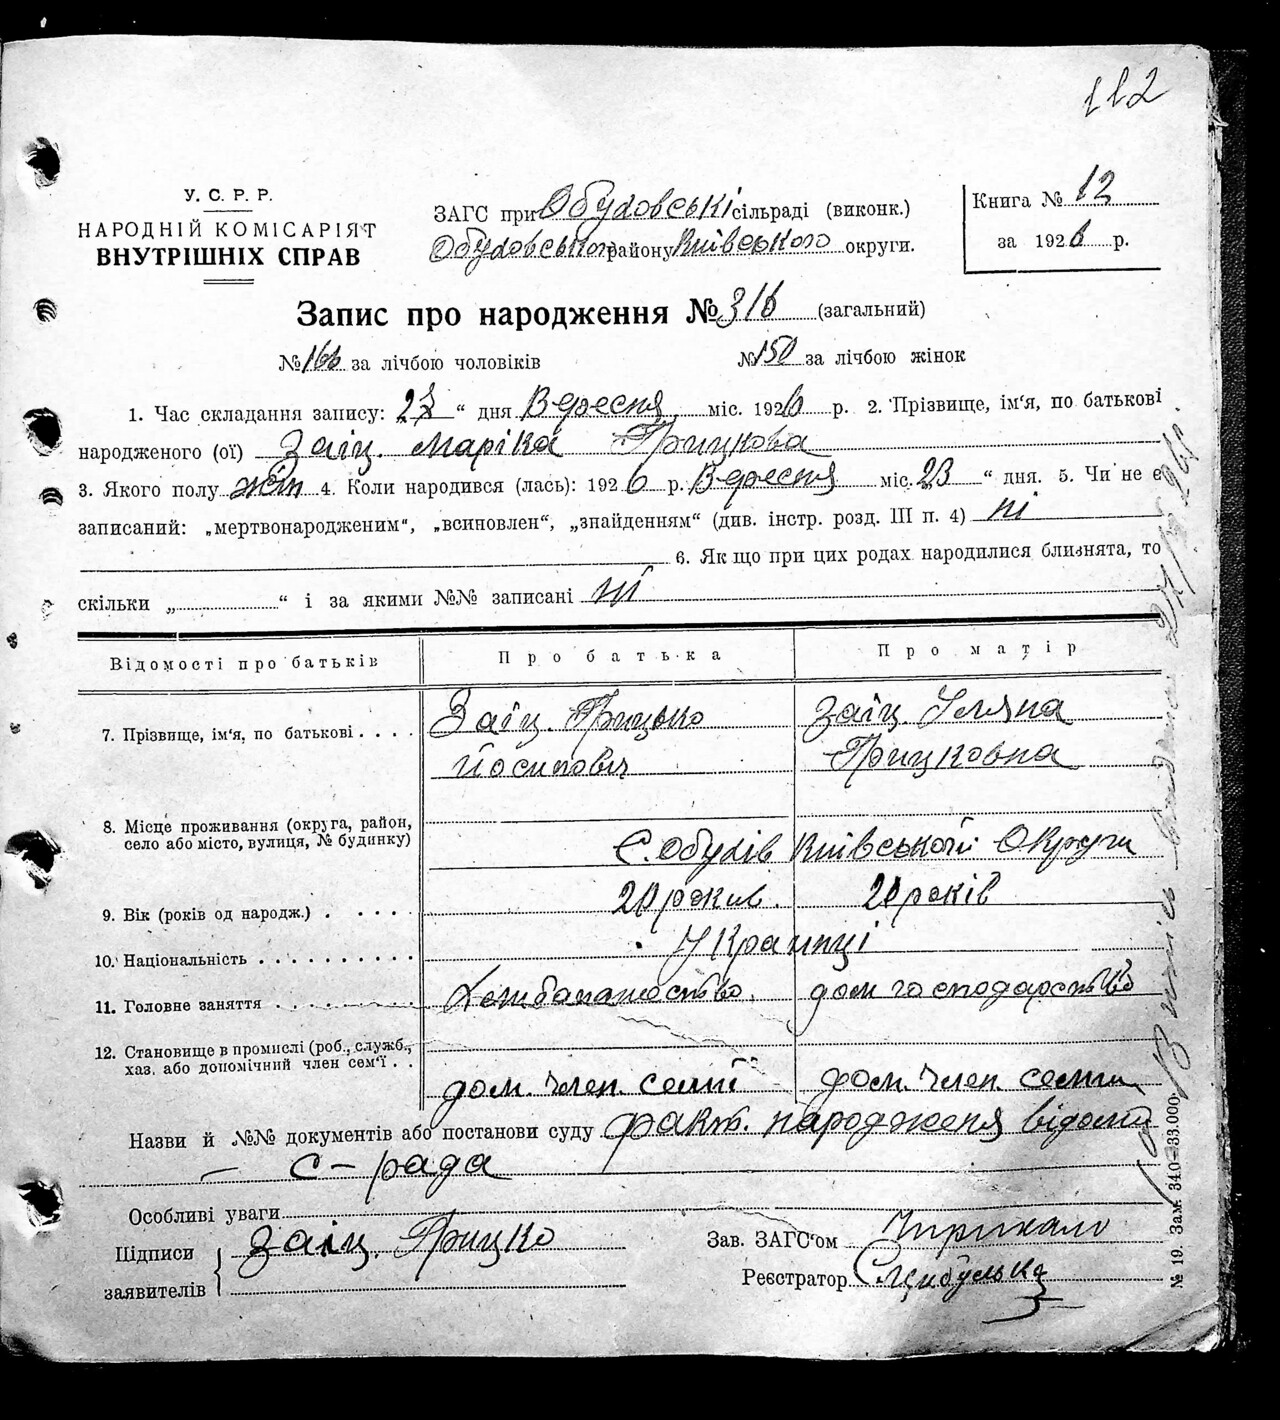 112
У. С. Р. Р.
НАРОДНІЙ КОМІСАРІЯТ
ВНУТРІШНІХ СПРАВ
ЗАГС при Обуховські сільраді (виконк.)
Обуховського району Київського округи.
Книга № 12
за 1926 р.
Запис про народження № 316 (загальний)
№ 166 за лічбою чоловіків № 150 за лічбою жінок
1. Час складання запису: 27 “ дня Вересня міс. 1926 р. 2. Прізвище, ім'я, по батькові
народженого (ої) Заіц Маріка Грицкова
3. Якого полу жін 4. Коли народився (лась): 1926 р. Вересня міс. 23 “ дня. 5. Чи не є
записаний: „мертвонародженим“, „всиновлен“, „знайденням“ (див. інстр. розд. III п. 4) ні
6. Як що при цих родах народилися близнята, то
скільки „ “ і за якими №№ записані ні
Відомості про батьків Про батька Про матір
7. Прізвище, ім'я, по батькові . . . .
Заіц Грицько
Йосипович
Заіц Уляна
Грицковна
8. Місце проживання (округа, район,
село або місто, вулиця, № будинку)
С. Обухів Київської Округи
9. Вік (років од народж.) . . . . . 20 рокив. 20 років
10. Національність . . . . . . . . . . Украинці
11. Головне заняття . . . . . . . . дом господарство
12. Становище в промислі (роб., служб.,
хаз. або допомічний член сем'ї . .
дом. член. семії дом. член. семии
Назви й №№ документів або постанови суду факт. народженя відомий
— С-рада
Особливі уваги
Підписи
заявителів
Заіц Грицко
Зав. ЗАГС'ом
Реєстратор Цибулька
№ 19. Зам. 340—33.000.